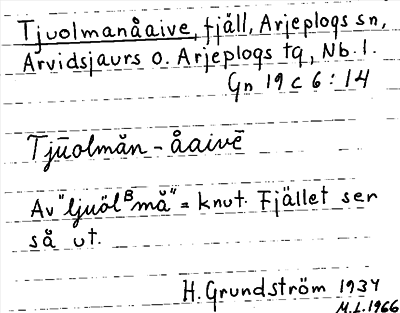 Tjuolmanåaive, fjäll, Arjeplogs sn,
Arvidsjaurs o. Arjeplogs tg, Nb. l.
Gn 19 C 6 : 14
Tjūolmăn - åaivē
Av "ljuölᴮmă" = knut. Fjället ser
så ut.
H. Grundström 1934
M.L. 1966